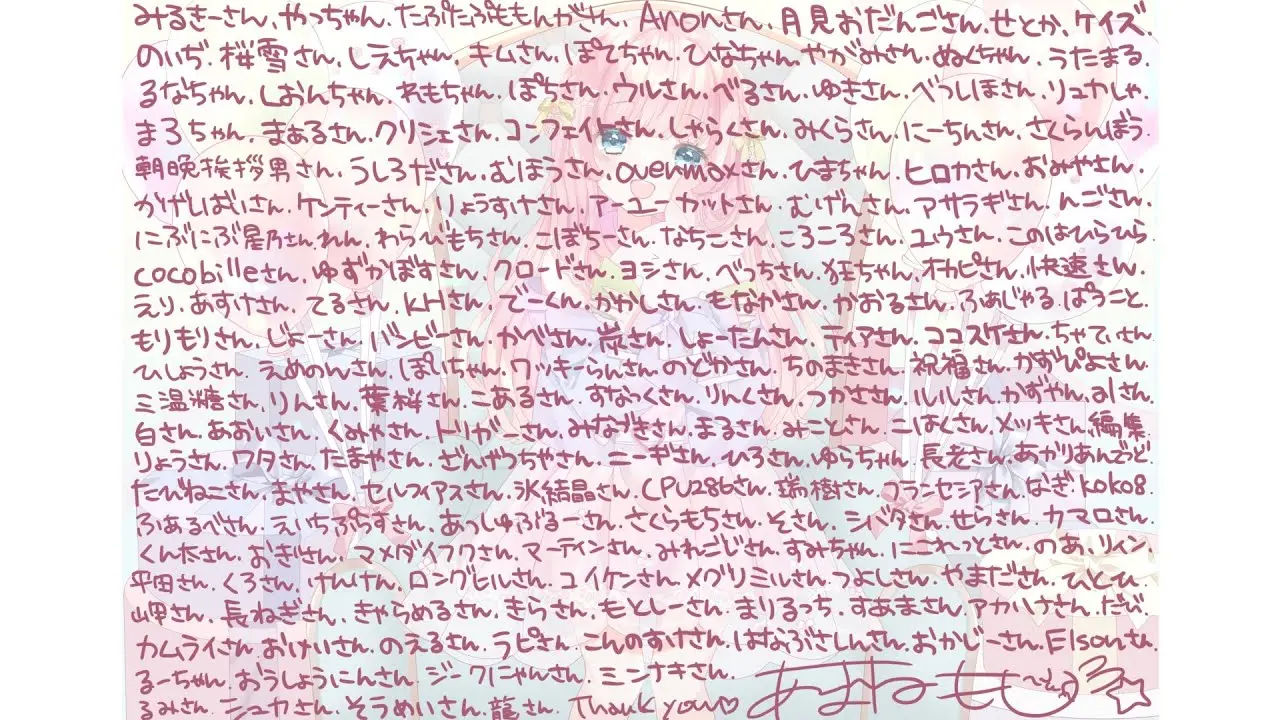 みるきーさん、やっちゃん、たぷたぷももんがさん、Anonさん、月見おだんごさん、せとか、ケイズ、
のいぢ、桜雪さん、しえちゃん、キムさん、ぽてちゃん、ひなちゃん、やがみさん、ぬくちゃん、うたまる、
るなちゃん、しおんちゃん、れもちゃん、ぽちさん、ウルさん、べるさん、ゆきさん、べっしほさん、リュカしゃ
まろちゃん、まぁるさん、クリシェさん、コーフェイトさん、しゃらくさん、みくらさん、にーちんさん、さくらんぼう
朝晩挨拶男さん、うしろださん、むほうさん、overmaxさん、ひまちゃん、ヒロカさん、おみやさん、
かげしばいさん、ケンティーさん、りょうすけさん、アーユーカットさん、むげんさん、アサラギさん、んごさん、
にぶにぶ星乃さん、れん、わらびもちさん、こぼちーさん、なちこさん、ころころさん、ユウさん、このはひらひら
cocobilleさん、ゆずかぼすさん、クロードさん、ヨシさん、べっちさん、狂ちゃん、オカピさん、快速さん、
えり、あすけさん、てるさん、KHさん、でーくん、かかしさん、もなかさん、かおるさん、ふぁじゃる、ぱうこと、
もりもりさん、じょーさん、バンビーさん、かべさん、炭さん、しょーたんさん、ティアさん、ココスケさん、ちゃてぃさん
ひしょうさん、えめのんさん、ぽいちゃん、ワッキーらんさん、のどかさん、ちのまきさん、祝福さん、かずぴよさん、
三温糖さん、りんさん、葉桜さん、こあるさん、すなっくさん、りんくさん、つかささん、ルルさん、かずやん、alさん、
白さん、あおいさん、くみやさん、トリガーさん、みなづきさん、まるさん、みことさん、こはくさん、メッキさん、編集
りょうさん、ワタさん、たまやさん、ざんやつちやさん、ニーギさん、ひろさん、ゆらちゃん、長老さん、あがりあんでっど
たびねこさん、まやさん、セルフィアスさん、氷結晶さん、CPU286さん、瑞樹さん、フランセシアさん、なぎ、koko8
ふぁるべさん、えいちぷらすさん、あっしゅぶるーさん、さくらもちさん、そさん、シバタさん、せらさん、カマロさん、
くん太さん、おぎさん、マメダイフクさん、マーティンさん、みねこじさん、すみちゃん、にこわっとさん、のあ、リィン、
平田さん、くろさん、けんけん、ロングヒルさん、ユイケンさん、メグリミルさん、つよしさん、やまださん、ひとひ、
岬さん、長ねぎさん、きゃらめるさん、きらさん、もとしーさん、まりるっち、すあまさん、アカハナさん、たび、
カムライさん、おけいさん、のえるさん、ラピさん、こんのすけさん、はなぶさしんさん、おかじーさん、Elsonさん、
るーちゃん、おうしょうにんさん、ジークにゃんさん、ミンナキさん、
るみさん、ニュカさん、そうめいさん、龍さん、Thank you♡